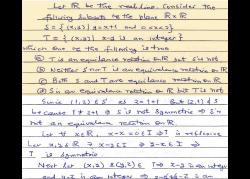 Let R be the real line. Consider the
following subsets of the plane R×R
S = {(x,y) : y=x+1 and 0<x<2}
T = {(x,y) : x-y is an integer}
which one of the following is true
(a) T is an equivalence relation on R but S is not
(b) Neither S nor T is an equivalence relation on R
(c) Both S and T are equivalence relation on R
(d) S is an equivalence relation on R but T is not
Since (1,2) ∈ S as 2=1+1 But (2,1) ∉ S
because 1 ≠ 2+1 ⇒ S is not symmetric ⇒ S is
not an equivalence relation on R
Let x ∈ R, x-x=0 ∈ I ⇒ T is reflexive
Let x,y ∈ R x-y ∈ I ⇒ y-x ∈ I ⇒
T is symmetric
Next let (x,y) &(y,z) ∈ T ⇒ x-y is an integer
and y-z is an integer ⇒ x-y+y-z is an